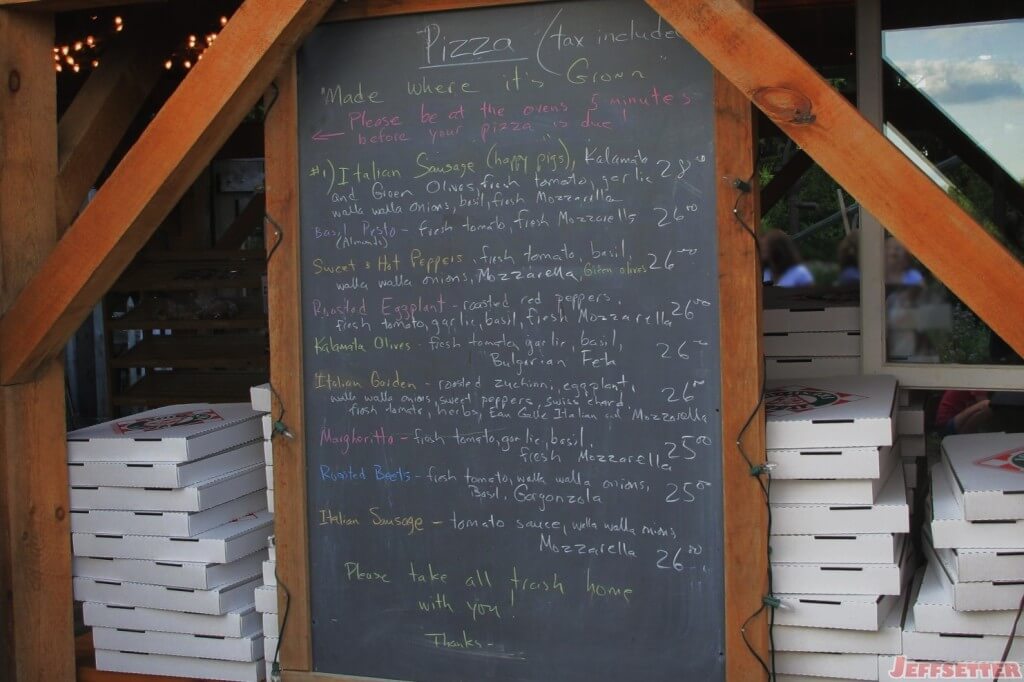 Pizza (tax include
"Made where it's Grown"
Please be at the ovens 5 minutes
← before your pizza is due!
#1) Italian Sausage (happy pigs), Kalamata
and Green Olives, fresh tomato, garlic 28⁰⁰
walla walla onions, basil, fresh Mozzarella
Basil Pesto - fresh tomato, fresh Mozzarella 26⁰⁰
(Almonds)
Sweet & Hot Peppers, fresh tomato, basil,
walla walla onions, Mozzarella, Green olives 26⁰⁰
Roasted Eggplant - roasted red peppers,
fresh tomato, garlic, basil, fresh Mozzarella 26⁰⁰
Kalamata Olives - fresh tomato, garlic, basil,
Bulgarian Feta 26⁰⁰
Italian Garden - roasted zuchinni, eggplant, 26⁰⁰
walla walla onions, sweet peppers, swiss chard,
fresh tomato, herbs, Eau Galle Italian Mozzarella
Margheritta - fresh tomato, garlic, basil,
fresh Mozzarella 25⁰⁰
Roasted Beets - fresh tomato, walla walla onions,
Basil, Gorgonzola 25⁰⁰
Italian Sausage - tomato sauce, walla walla onions,
Mozzarella 26⁰⁰
Please take all trash home
with you!
Thanks -
JEFFSETTER